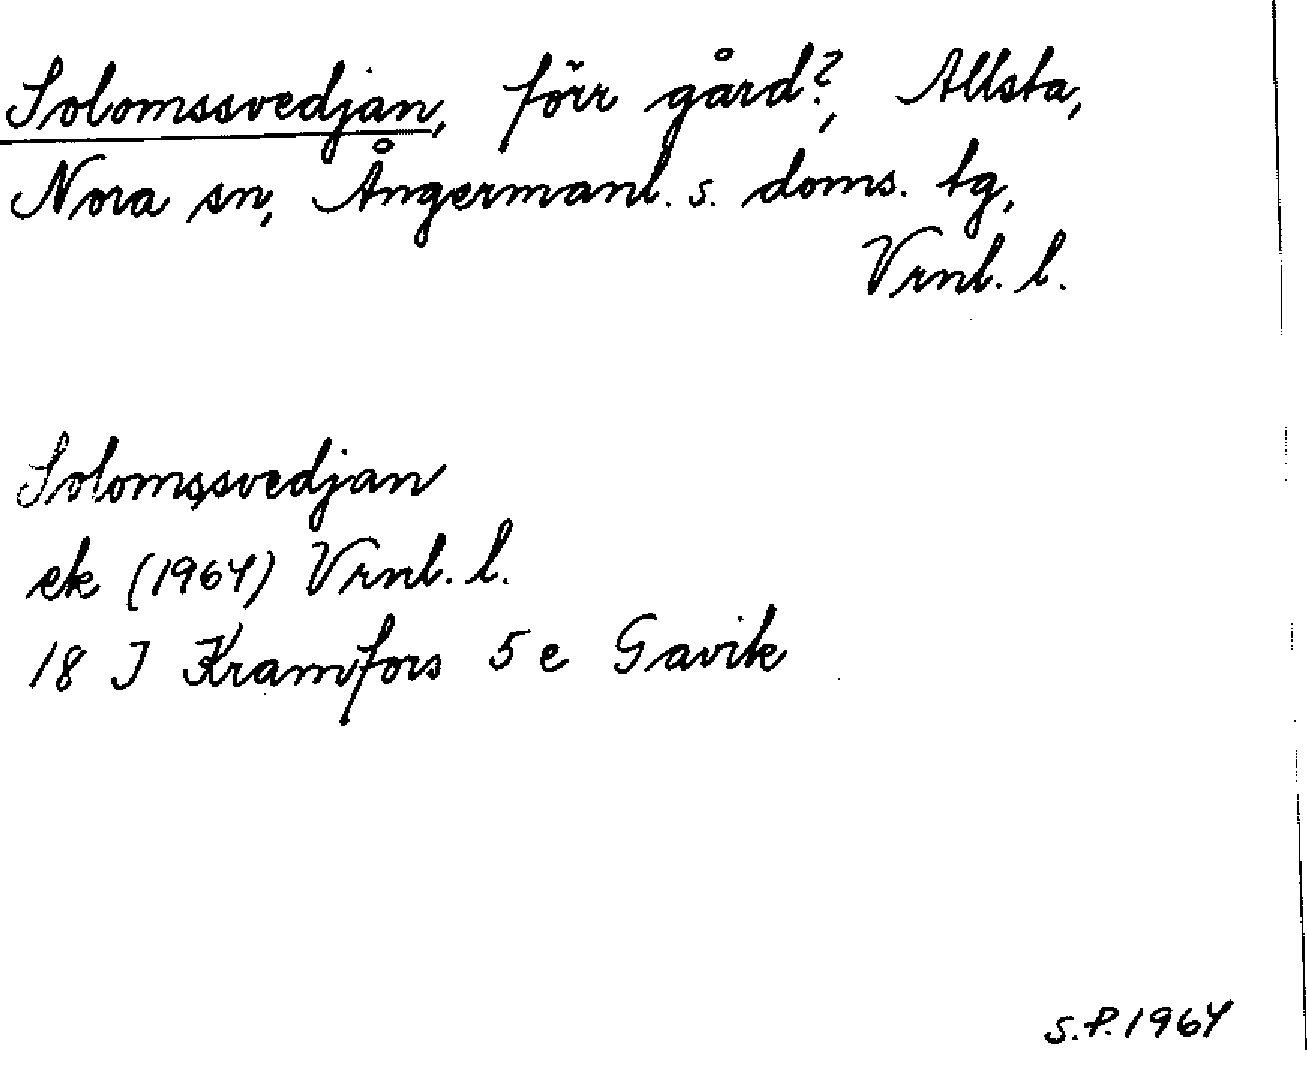 Solomssvedjan, förr gård?, Allsta,
Nora sn, Ångermanl. s. doms. tg,
Vrnl. l.
Solomssvedjan
ek (1964) Vrnl. l.
18 J Kramfors 5 e Gavik
S.P. 1964